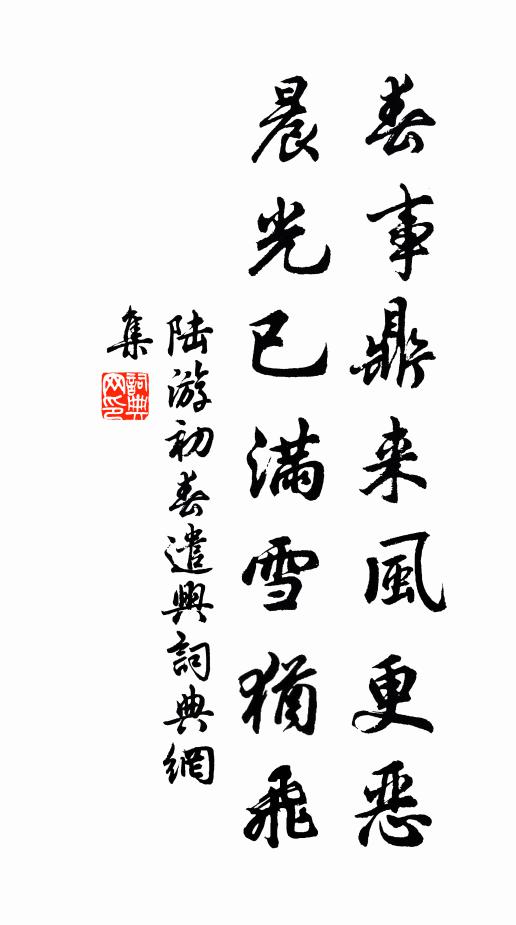 春事鼎来風更惡
晨光已滿雪猶飛
陆游初春遣興詞典網
集
詞典
网印